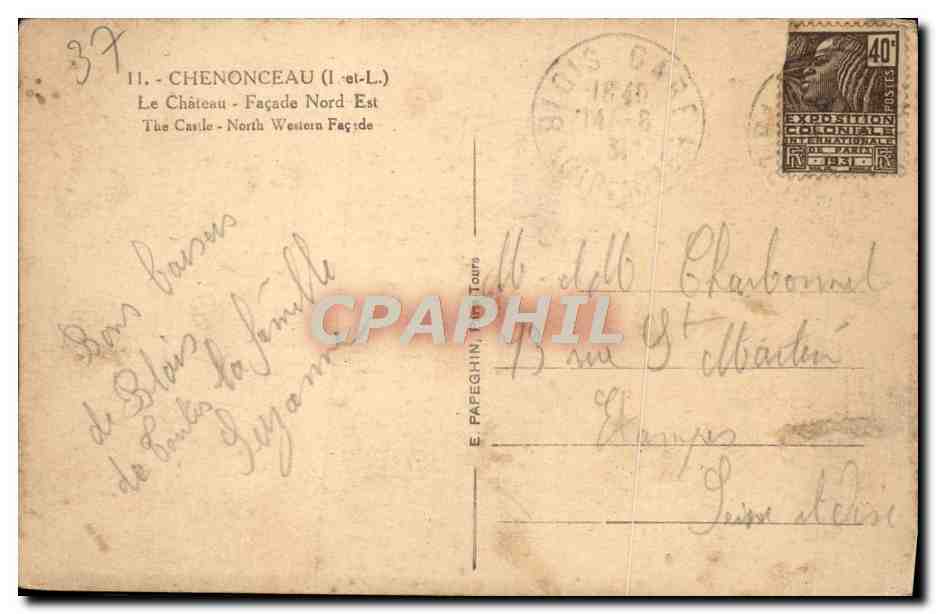 37
11. - CHENONCEAU (I.-et-L.)
Le Château - Façade Nord Est
The Castle - North Western Façade
BLOIS GARE
18 40
14 - 8
31
40c
POSTES
EXPOSITION
COLONIALE
INTERNATIONALE
DE PARIS
RF 1931 RF
Bons baisers
de Blois
de toutes la famille
Suzanne
E. PAPEGHIN, Tours
CPAPHIL
M. et M Charbonnel
13 rue St Martin
Etampes
Seine et Oise